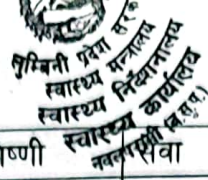 लुम्बिनी प्रदेश सरकार
स्वास्थ्य मन्त्रालय
स्वास्थ्य निर्देशनालय
स्वास्थ्य कार्यालय
नवलपरासी (ब.सु.प.)
सेवा